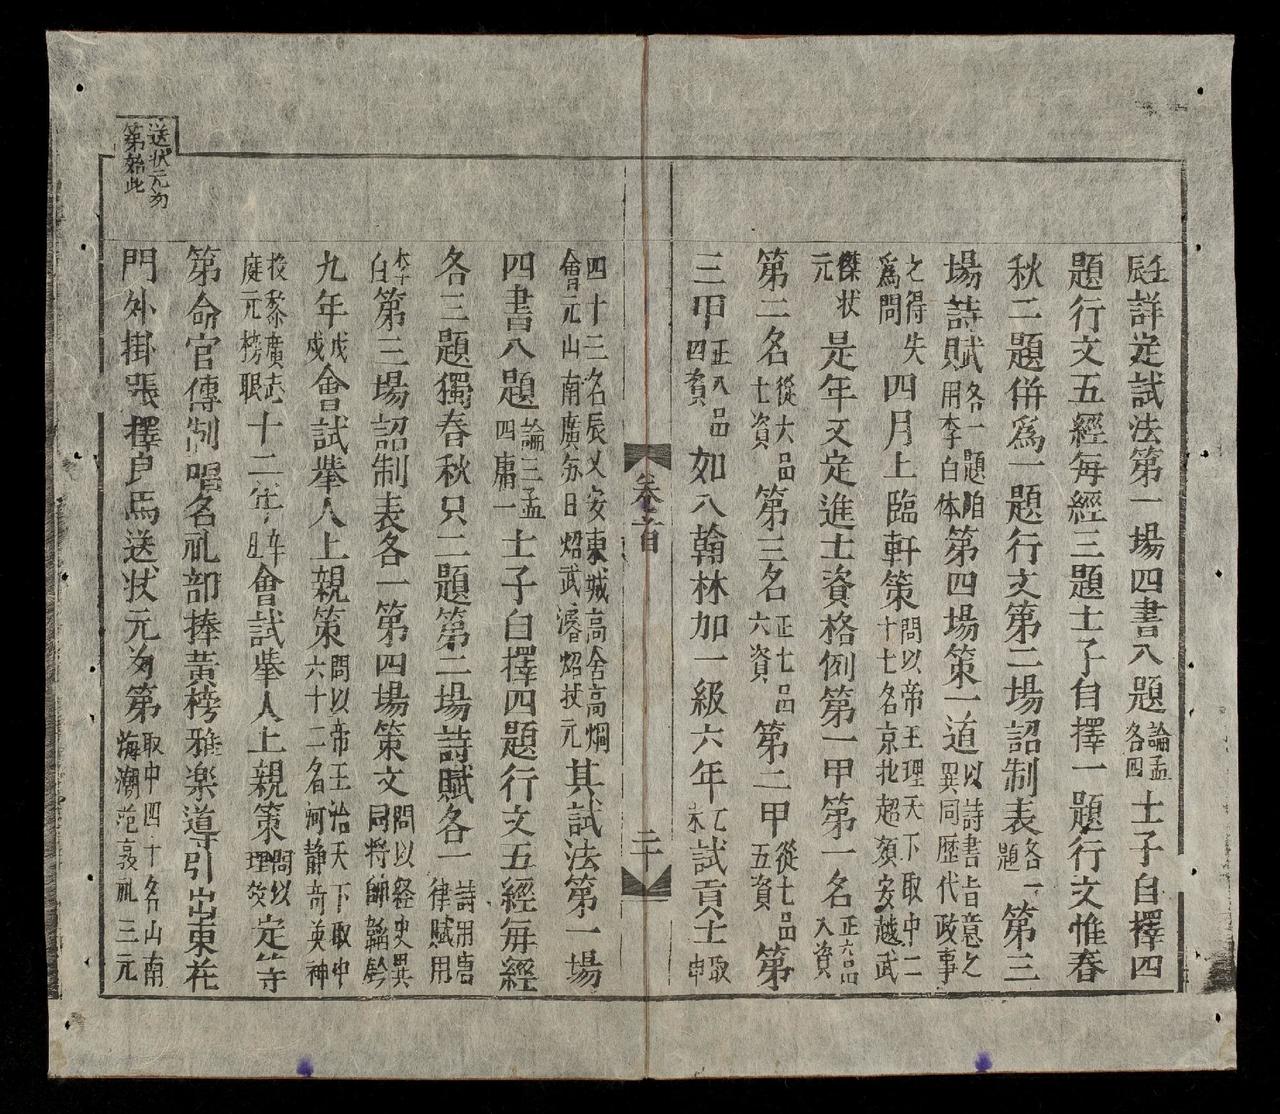 壬辰詳定試法第一場四書八題論孟各四士子自擇四
題行文五經每經三題士子自擇一題行文惟春
秋二題併爲一題行文第二場詔制表各一題第三
場詩賦各一題賦用李白体第四場策一道以詩書旨意之異同歷代政事
之得失爲問四月上臨軒策問以帝王理天下取中二十七名京北超類安越武
傑状元是年文定進士資格例第一甲第一名正六品八資
第二名從六品七資第三名正七品六資第二甲從七品五資第
三甲正八品四資如入翰林加一級六年乙未試貢士取中
卷首
二十
四十三名辰乂安東城高舍高烱會元山南廣夯日炤武濬炤状元其試法第一場
四書八題論三孟四庸一士子自擇四題行文五經每經
各三題獨春秋只二題第二場詩賦各一詩用唐律賦用
李白第三場詔制表各一第四場策文問以經史異同將帥韜鈐
九年戊戌會試舉人上親策問以帝王治天下取中六十二名河靜奇英神
投黎廣志庭元榜眼十二年辛丑會試舉人上親策問以理癹定等
第命官傳制唱名礼部捧黃榜雅楽導引出東花
門外掛張擇良馬送状元㱕第取中四十名山南海潮范敦礼三元
送状元㱕
第始此